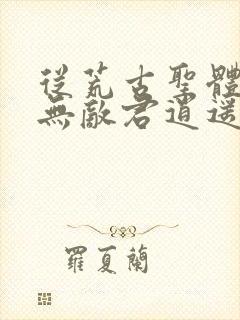 從荒古聖體
無敵君逍遙
羅夏蘭